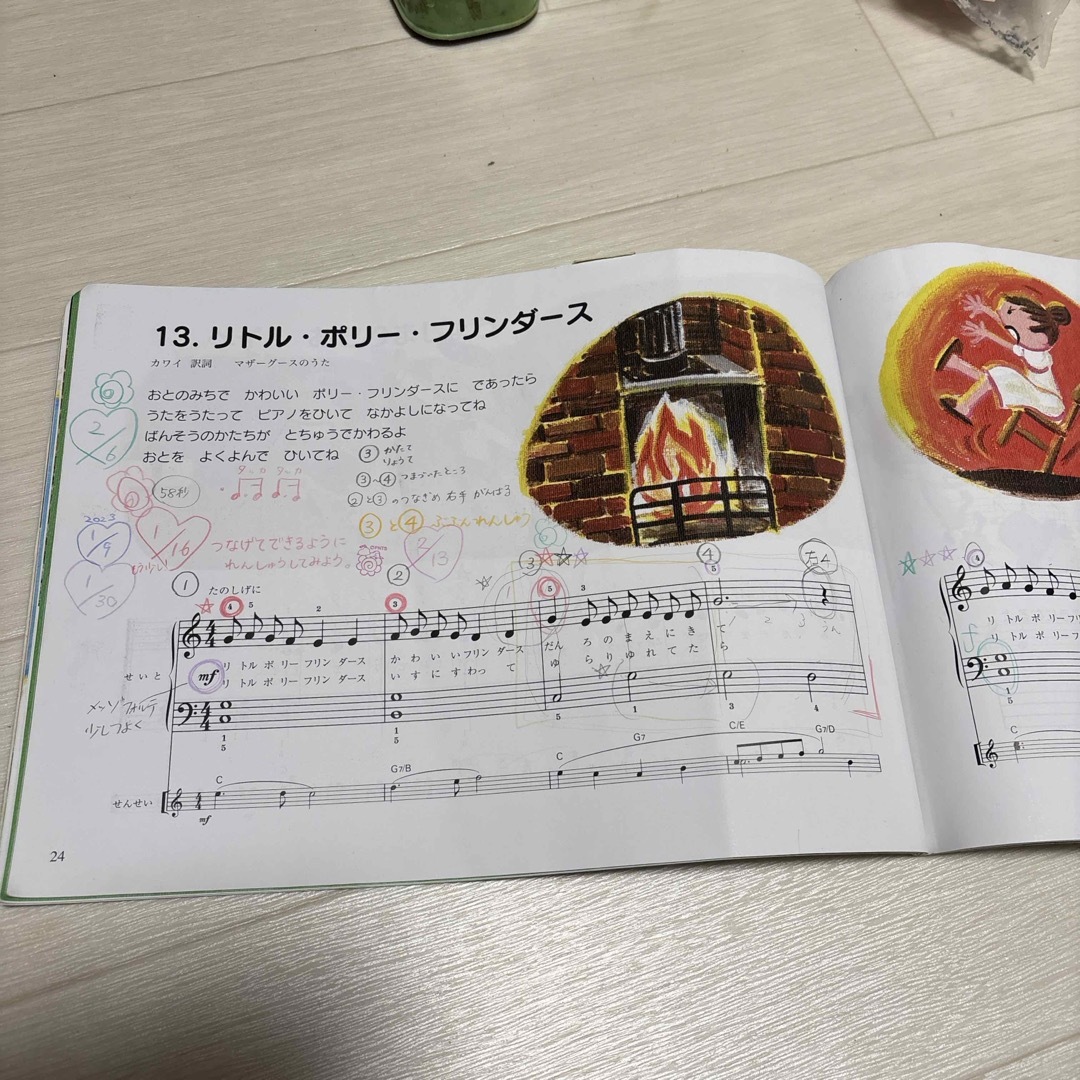 13. リトル・ポリー・フリンダース
カワイ 訳詞 マザーグースのうた
おとのみちで かわいい ポリー・フリンダースに であったら
うたをうたって ピアノをひいて なかよしになってね
ばんそうのかたちが とちゅうでかわるよ
おとを よくよんで ひいてね
2/6
③ かたて
りょうて
③〜④ つまづいたところ
②と③のつなぎめ 右手 がんばる
③と④ ぶぶんれんしゅう
58秒
ターカ ターカ
2023
1/9
1/16
もう少し!
1/30
つなげてできるように
れんしゅうしてみよう。
2/13
① ② ③ ④
右4
たのしげに
4 5 2 3 5 3 5
1 2 3 うん
リ トル ポ リー フリン ダース か わ い い フリン ダース だん ろ の ま え に き て
リ トル ポ リー フリン ダース い す に す わっ て ゆ ら り ゆ れ て た ら
せいと
mf
メッゾフォルテ
少しつよく
1 5 1 5 5 1 3 4
C G7/B C G7 C/E G7/D
せんせい
mf
24
4
リ トル ポ リー フリ
リ トル ポ リー フリ
f
1
5
C